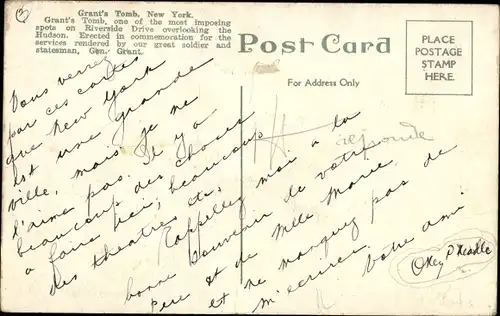 3
Grant's Tomb, New York.
Grant's Tomb, one of the most imposing
spots on Riverside Drive overlooking the
Hudson. Erected in commemoration for the
services rendered by our great soldier and
statesman, Gen. Grant.
Post Card
For Address Only
PLACE
POSTAGE
STAMP
HERE.
Vous verrez
par ces cartes
que New York
est une grande
ville, mais je ne
l'aime pas. Il y a
beaucoup des choses
a faire ici; beaucoup
des theatres etc.
Rappellez moi a la
bonne souvenir de votre
père et de Mlle Marie,
et ne manquez pas de
m'écrirer. Votre ami
Okey P